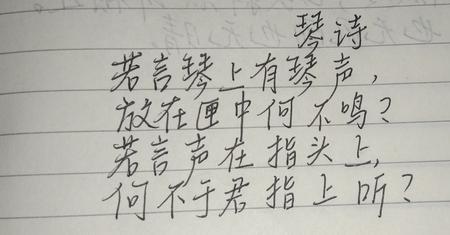 琴诗
若言琴上有琴声，
放在匣中何不鸣？
若言声在指头上，
何不于君指上听？